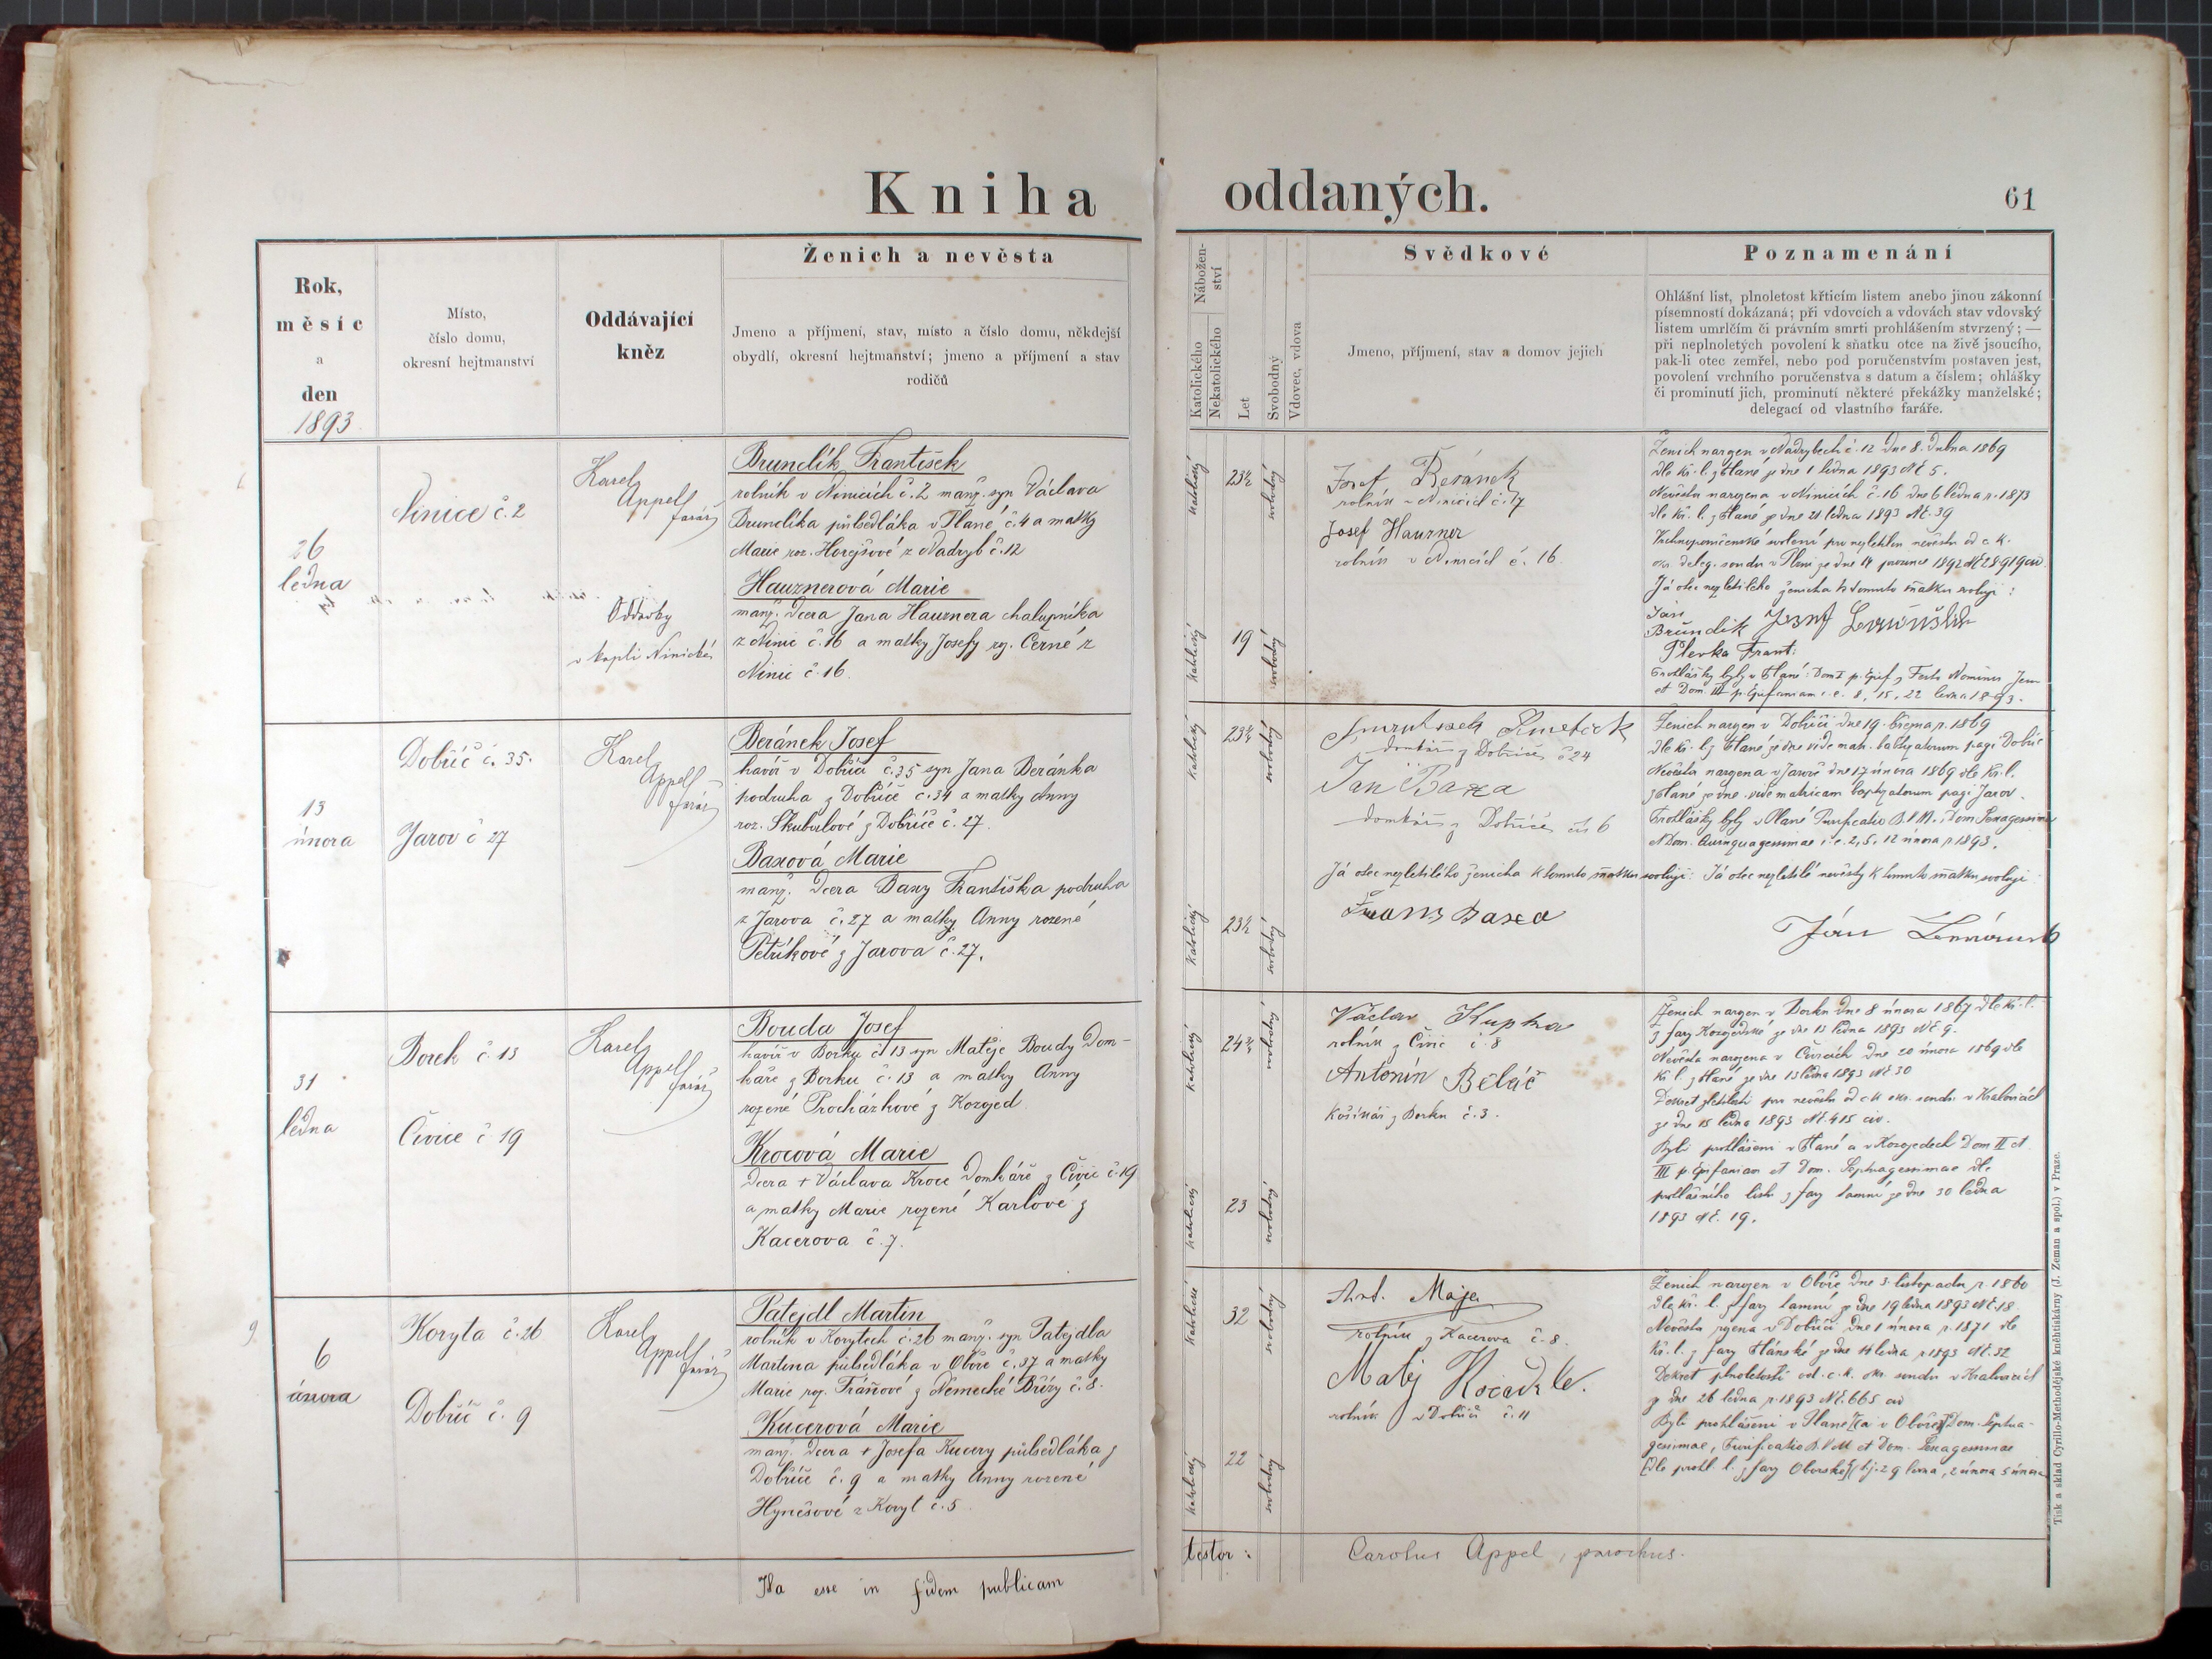 Kniha oddaných.
61
Rok,
měsíc
a
den
1893
Místo,
číslo domu,
okresní hejtmanství
Oddávající
kněz
Ženich a nevěsta
Jmeno a příjmení, stav, místo a číslo domu, někdejší
obydlí, okresní hejtmanství; jmeno a příjmení a stav
rodičů
Nábožen-
ství
Katolického
Nekatolického
Let
Svobodný
Vdovec, vdova
Svědkové
Jmeno, příjmení, stav a domov jejich
Poznamenání
Ohlášní list, plnoletost křticím listem anebo jinou zákonní
písemností dokázaná; při vdovcích a vdovách stav vdovský
listem umrlčím či právním smrti prohlášením stvrzený; —
při neplnoletých povolení k sňatku otce na živě jsoucího,
pak-li otec zemřel, nebo pod poručenstvím postaven jest,
povolení vrchního poručenstva s datum a číslem; ohlášky
či prominutí jich, prominutí některé překážky manželské;
delegací od vlastního faráře.
26
ledna
Ninice č. 2
Karel
Appel
farář
Oddavky
v kapli Ninické
Brundlík František
rolník v Ninicích č. 2 manž. syn Václava
Brundlíka půlsedláka v Plané č. 4 a matky
Marie roz. Horejšové z Nadryb č. 12
Hauznerová Marie
manž. dcera Jana Hauznera chalupníka
z Ninic č. 16 a matky Josefy roz. Černé z
Ninic č. 16.
katolický
23½
svobodný
katolický
19
svobodný
Josef Beránek
rolník v Ninicích č. 7
Josef Hauzner
rolník v Ninicích č. 16
Ženich narozen v Nadrybech č. 12 dne 8. dubna 1869
dle kř. l. z Plané ze dne 1 ledna 1893 Nč 5.
Nevěsta narozena v Ninicích č. 16 dne 6 ledna r. 1873
dle kř. l. z Plané ze dne 21 ledna 1893 Nč. 39
okr. deleg. soudu v Plzni ze dne 14 prosince 1892
Já otec nezletilého ženicha k tomuto sňatku svoluji:
Jan
Brundlík
Plevka Frant.
Prohlášky byly v Plané: Dom I p. Epif.
et Dom. III p. Epifaniam i. e. 8, 15, 22 ledna 1893.
13
února
Dobříč č. 35.
Jarov č 27
Karel
Appel
farář
Beránek Josef
havíř v Dobříči č. 35 syn Jana Beránka
podruha z Dobříče č. 34 a matky Anny
roz. Skubalové z Dobříče č. 27.
Baxová Marie
manž. dcera Baxy Františka podruha
z Jarova č. 27 a matky Anny rozené
Petříkové z Jarova č. 27.
katolický
23½
svobodný
katolický
23½
svobodný
domkář z Dobříče č 24
Jan Baxa
domkář z Dobříče čís 6
Ženich narozen v Dobříči dne 19. března r. 1869
dle kř. l. z Plané ze dne vide matr. baptizatorum pagi Dobříč
Nevěsta narozena v Jarově dne 17 února 1869 dle kř. l.
z Plané ze dne vide matricam baptizatorum pagi Jarov.
Prohlášky byly v Plané Purificatio B.V.M., Dom Sexagesima
et Dom. Quinquagesimae i. e. 2, 5, 12 února r 1893.
Já otec nezletilého ženicha k tomuto sňatku svoluji: Já otec nezletilé nevěsty k tomuto sňatku svoluji:
Franz Baxa
31
ledna
Borek č 13
Čivice č 19
Karel
Appel
farář
Bouda Josef
havíř v Borku č 13 syn Matěje Boudy Dom-
káře z Borku č. 13 a matky Anny
rozené Procházkové z Kozojed
Krocová Marie
dcera + Václava Kroce Domkáře z Čivic č. 19
a matky Marie rozené Karlové z
Kacerova č. 7.
katolický
24
svobodný
katolický
23
svobodný
Václav Kupka
rolník z Čivic č. 8
Antonín Běláč
košinář z Borku č. 3.
Ženich narozen v Borku dne 8 února 1867 dle kř. l.
z fary Kozojedské ze dne 13 ledna 1893 Nč. 9.
Nevěsta narozena v Čivicích dne 20 února 1869 dle
kř. l. z Plané ze dne 13 ledna 1893 Nč 30
Dekret zletilosti pro nevěstu od c k okr. soudu v Kralovicích
ze dne 15 ledna 1893 Nč. 415 civ.
Byli prohlášeni v Plané a v Kozojedech Dom II et
III p. Epifaniam et Dom. Septuagesimae dle
prohlášního listu z fary tamní ze dne 30 ledna
1893 Nč. 19.
9.
6
února
Koryta č. 26
Dobříč č. 9
Karel
Appel
farář
Patejdl Martin
rolník v Korytech č. 26 manž. syn Patejdla
Martina půlsedláka v Oboře č. 37 a matky
Marie roz. Tráňové z Německé Břízy č. 8.
Kucerová Marie
manž. dcera + Josefa Kucery půlsedláka z
Dobříče č. 9 a matky Anny rozené
Hynčšové z Koryt č. 5
32
svobodný
katolický
22
svobodný
Ant. Maja
rolník z Kacerova č. 8.
Matěj
rolník v Dobříči č. 11
Ženich narozen v Oboře dne 3. listopadu r. 1860
dle kř. l. z fary tamní ze dne 19 ledna 1893 Nč 18.
Nevěsta rozena v Dobříči dne 1 února r. 1871 dle
kř. l. z fary Planské ze dne 14 ledna r 1893 Nč. 32
Dekret plnoletosti od c. k. okr. soudu v Kralovicích
z dne 26 ledna r. 1893 Nč. 665 civ
Byli prohlášeni v Plané [a v Oboře] Dom. Septua-
gesimae, Purificatio B.V.M et Dom. Sexagesimae
[dle prohl. l. z fary Oborské] (tj. 29 ledna, 2 února 5 února
Ita esse in fidem publicam testor: Carolus Appel, parochus.
Tisk a sklad Cyrillo-Methodějské kněhtiskárny (J. Zeman a spol.) v Praze.